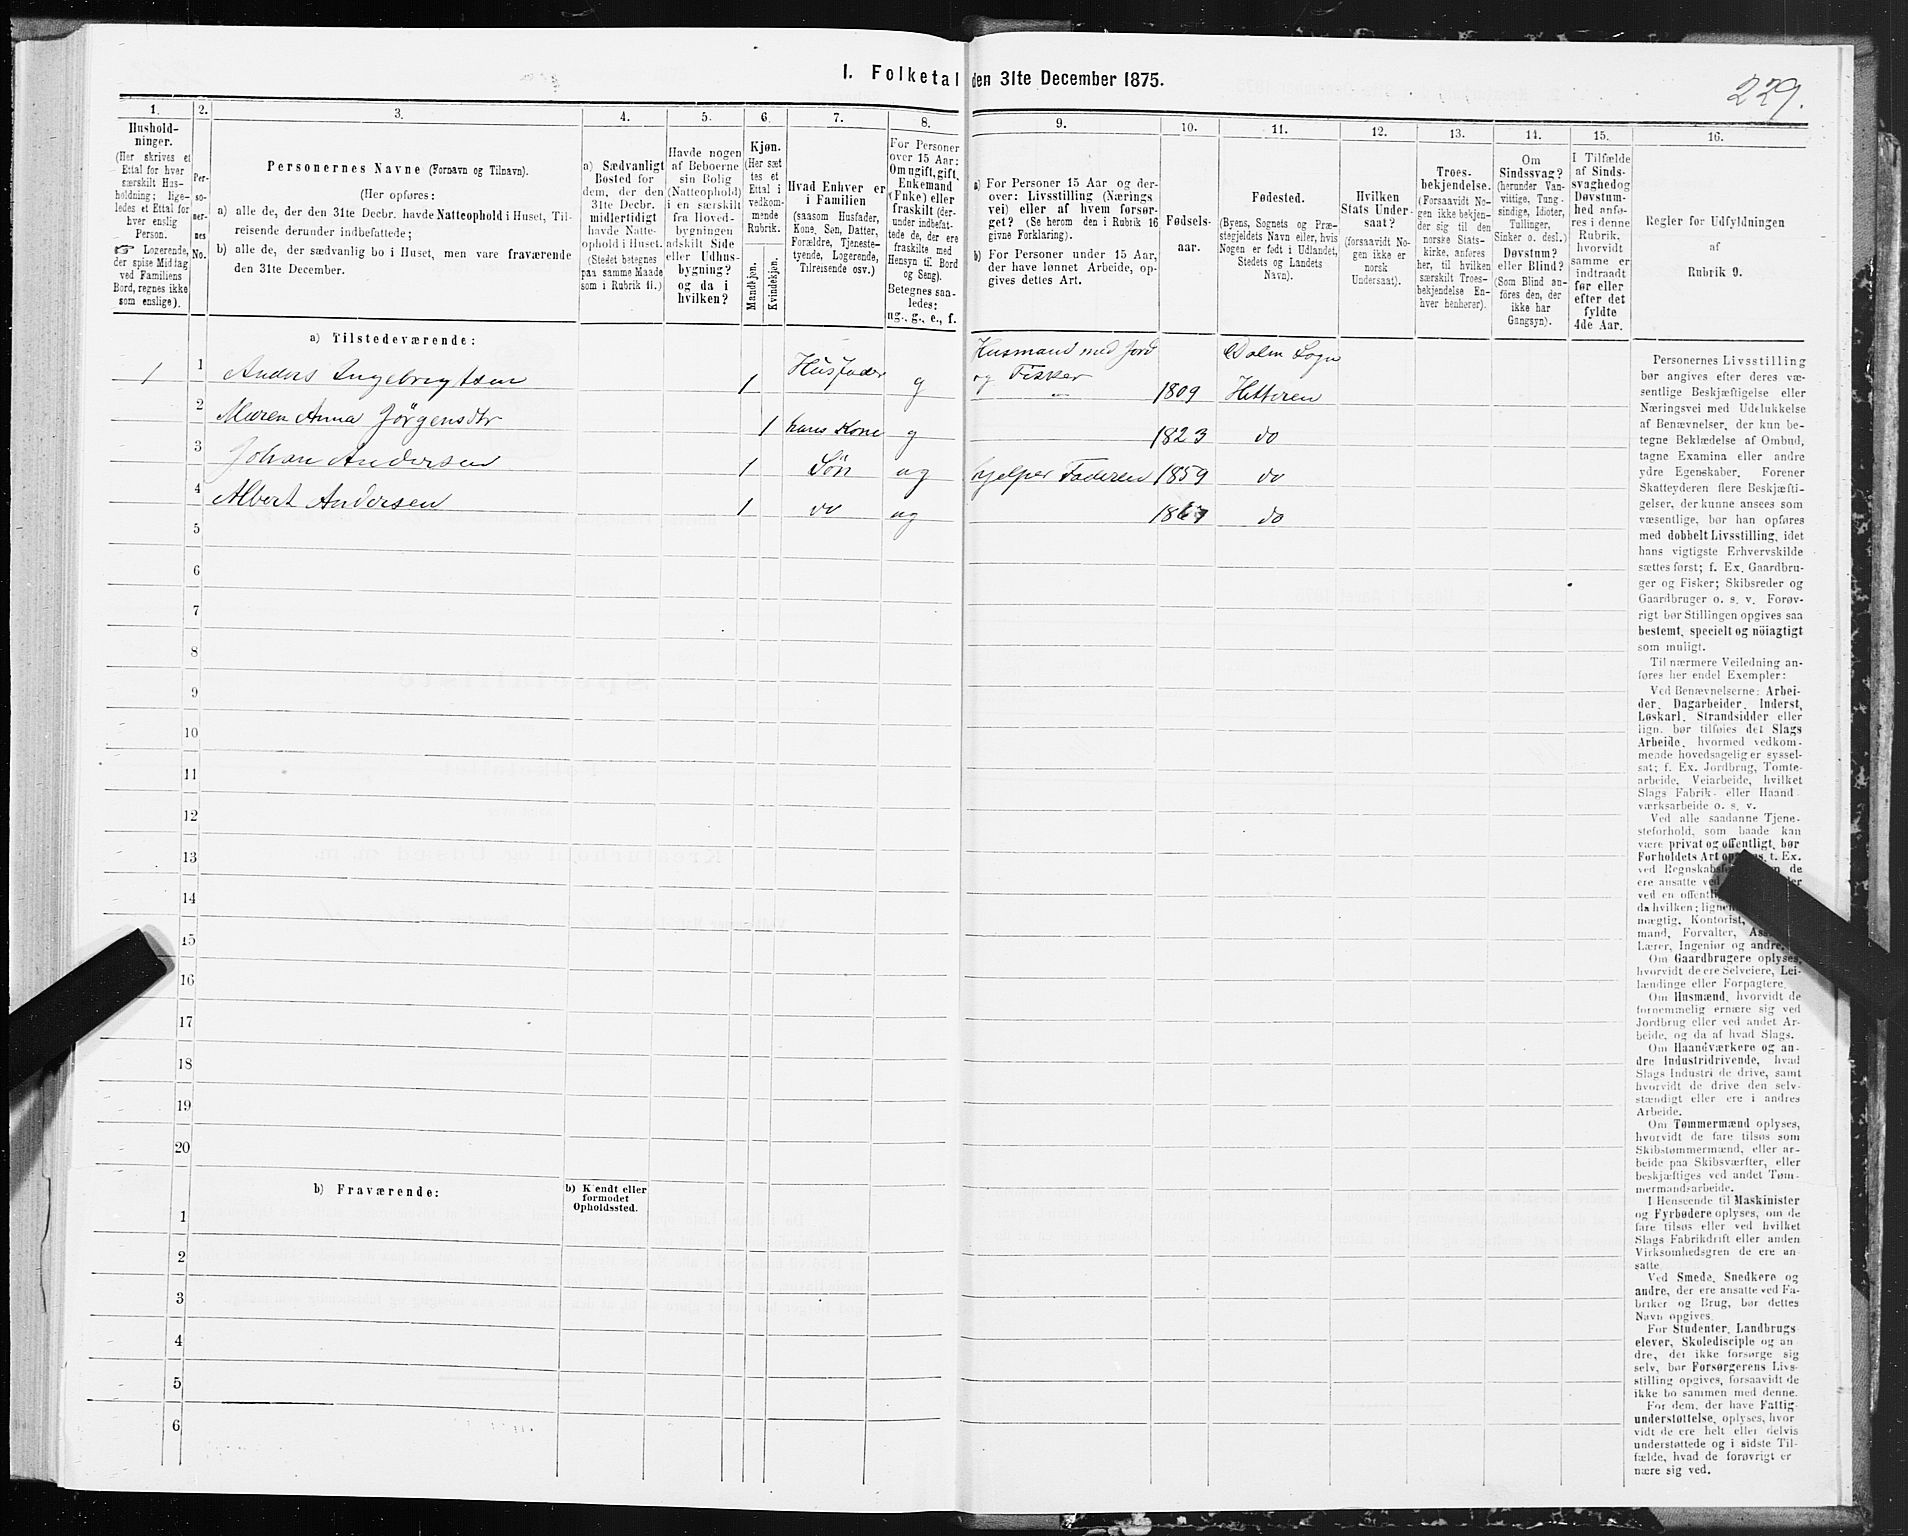 I. Folketal den 31te December 1875.
229.
1. 2. 3. 4. 5. 6. 7. 8. 9. 10. 11. 12. 13. 14. 15. 16.
Hushold-
ninger.
(Her skrives et
Ettal for hver
særskilt Hus-
holdning; lige-
ledes et Ettal for
hver enslig
Person.
☞ Logerende,
der spise Middag
ved Familiens
Bord, regnes ikke
som enslige).
Per-
so-
ner-
nes
No.
Personernes Navne (Fornavn og Tilnavn).
(Her opføres:
a) alle de, der den 31te Decbr. havde Natteophold i Huset, Til-
reisende derunder indbefattede;
b) alle de, der sædvanlig bo i Huset, men vare fraværende
den 31te December.
a) Sædvanligt
Bosted for
dem, der den
31te Decbr.
midlertidigt
havde Natte-
ophold i Huset.
(Stedet betegnes
paa samme Maade
som i Rubrik 11.)
Havde nogen
af Beboerne
sin Bolig
(Natteophold)
i en særskilt
fra Hoved-
bygningen
adskilt Side
eller Udhus-
bygning?
og da i
hvilken?
Kjøn.
(Her sæt
tes et
Ettal i
vedkom-
mende
Rubrik.
Mandkjøn.
Kvindekjøn.
Hvad Enhver er
i Familien
(saasom Husfader,
Kone, Søn, Datter,
Forældre, Tjeneste-
tyende, Logerende,
Tilreisende osv.)
For Personer
over 15 Aar:
Om ugift, gift,
Enkemand
(Enke) eller
fraskilt (der-
under indbefat-
tede de, der ere
fraskilte med
Hensyn til Bord
og Seng).
Betegnes saa-
ledes:
ug., g., e., f.
a) For Personer 15 Aar og der-
over: Livsstilling (Nærings
vei) eller af hvem forsør-
get? (Se herom den i Rubrik 16
givne Forklaring).
b) For Personer under 15 Aar,
der have lønnet Arbeide, op-
gives dettes Art.
Fødsels-
aar.
Fødested.
(Byens, Sognets og Præ-
stegjeldets Navn eller, hvis
Nogen er født i Udlandet,
Stedets og Landets
Navn).
Hvilken
Stats Under-
saat?
(forsaavidt No-
gen ikke er
norsk
Undersaat).
Troes-
bekjendelse.
(Forsaavidt No-
gen ikke bekjen-
der sig til den
norske Stats-
kirke, anføres
her, til hvilken
særskilt Troes-
bekjendelse En-
hver henhører).
Om
Sindssvag?
(herunder Van-
vittige, Tung-
sindige, Idioter,
Tullinger,
Sinker o. desl.)
Døvstum?
eller Blind?
(Som Blind an-
føres den, der
ikke har
Gangsyn).
I Tilfælde
af Sinds-
svaghedog
Døvstum-
hed anfø-
res i denne
Rubrik,
hvorvidt
samme er
indtraadt
før eller
efter det
fyldte
4de Aar.
Regler for Udfyldningen
af
Rubrik 9.
a) Tilstedeværende:
1 1 Anders Ingebrigtsen 1 Husfader g Husmand med Jord og Fisker 1809 Dolm Sogn Hitteren
2 Maren Anna Jørgensdtr 1 hans Kone g 1823 do
3 Johan Andersen 1 Søn ug hjelper Faderen 1859 do
4 Albert Andersen 1 do ug do
5
6
7
8
9
10
11
12
13
14
15
16
17
18
19
20
b) Fraværende:
b) Kjendt eller
formodet
Opholdssted.
1
2
3
4
5
6
Personernes Livsstilling
bør angives efter deres væ-
sentlige Beskjæftigelse eller
Næringsvei med Udelukkelse
af Benævnelser, der kun be-
tegne Beklædelse af Ombud,
tagne Examina eller andre
ydre Egenskaber. Forener
Skatteyderen flere Beskjæfti-
gelser, der kunne ansees som
væsentlige, bør han opføres
med dobbelt Livsstilling, idet
hans vigtigste Erhvervskilde
sættes først; f. Ex. Gaardbru-
ger og Fisker; Skibsreder og
Gaardbruger o. s. v. Forøv-
rigt bør Stillingen opgives saa
bestemt, specielt og nöiagtigt
som muligt.
Til nærmere Veiledning an-
føres her endel Exempler:
Ved Benævnelserne: Arbei-
der, Dagarbeider, Inderst,
Løskarl, Strandsidder eller
lign. bør tilføies det Slags
Arbeide, hvormed vedkom-
mende hovedsagelig er syssel-
sat; f. Ex. Jordbrug, Tomte-
arbeide, Veiarbeide, hvilket
Slags Fabrik- eller Haand-
værksarbeide o. s. v.
Ved alle saadanne Tjene-
steforhold, som baade kan
være privat og offentligt, bør
Forholdets Art t. Ex.
ved de
ere ansatte ved
ved en
da hvilken;
mægtig, Kontorist,
mand, Forvalter,
Lærer, Ingeniør og andre.
Om Gaardbrugere oplyses,
hvorvidt de ere Selveiere, Lei-
lændinge eller Forpagtere.
Om Husmænd, hvorvidt de
fornemmelig ernære sig ved
Jordbrug eller ved andet Ar-
beide, og da af hvad Slags.
Om Haandværkere og an-
dre Industridrivende, hvad
Slags Industri de drive, samt
hvorvidt de drive den selv-
stændigt eller ere i andres
Arbeide.
Om Tømmermænd oplyses,
hvorvidt de fare tilsøs som
Skibstømmermænd, eller ar-
beide paa Skibsværfter, eller
beskjæftiges ved andet Tøm-
mermandsarbeide.
I Henseende til Maskinister
og Fyrbødere oplyses, om de
fare tilsøs eller ved hvilket
Slags Fabrikdrift eller anden
Virksomhedsgren de ere an-
satte.
Ved Smede, Snedkere og
andre, der ere ansatte ved Fa-
briker og Brug, bør dettes
Navn opgives.
For Studenter, Landbrugs
elever, Skoledisciple og an-
dre, der ikke forsørge sig
selv, bør Forsørgerens Livs-
stilling opgives, forsaavidt de
ikke bo sammen med denne.
For dem, der have Fattig-
understøttelse, oplyses, hvor
vidt de ere helt eller delvis
understøttede og i sidste Til-
fælde, hvad de forøvrigt er
nære sig ved.